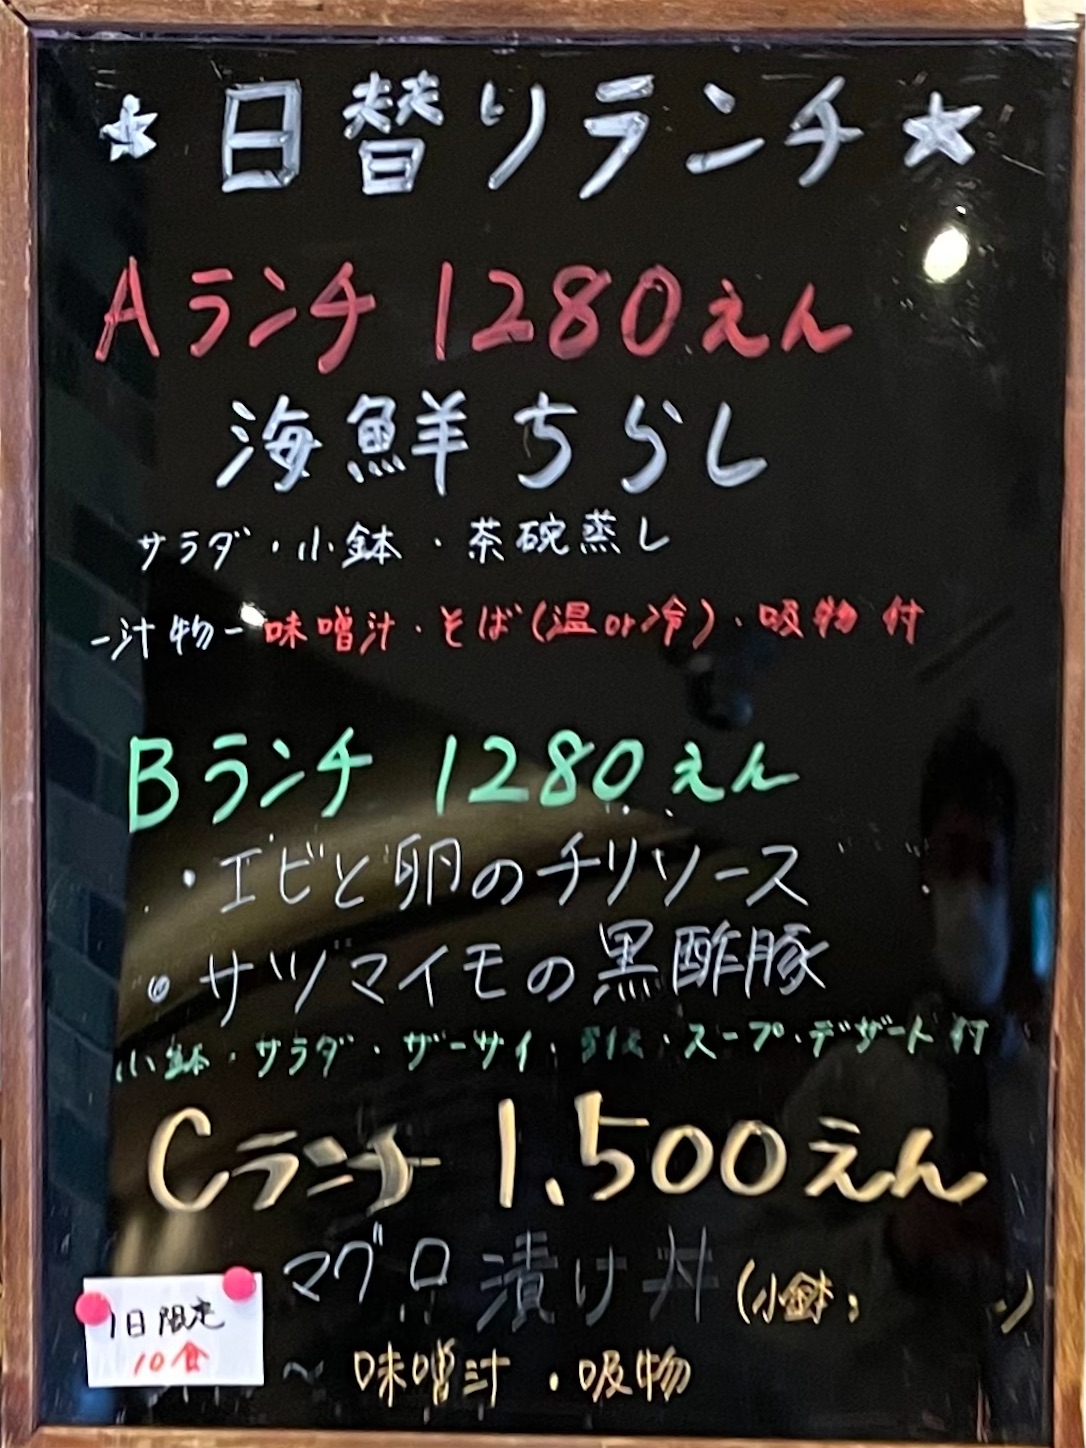 ☆ 日替りランチ ☆
Aランチ 1280えん
海鮮ちらし
サラダ・小鉢・茶碗蒸し
-汁物- 味噌汁・そば(温or冷)・吸物 付
Bランチ 1280えん
・エビと卵のチリソース
・サツマイモの黒酢豚
小鉢・サラダ・ザーサイ・・スープ・デザート付
Cランチ 1,500えん
マグロ漬け丼 (小鉢 )
~ 味噌汁・吸物
1日限定
10食